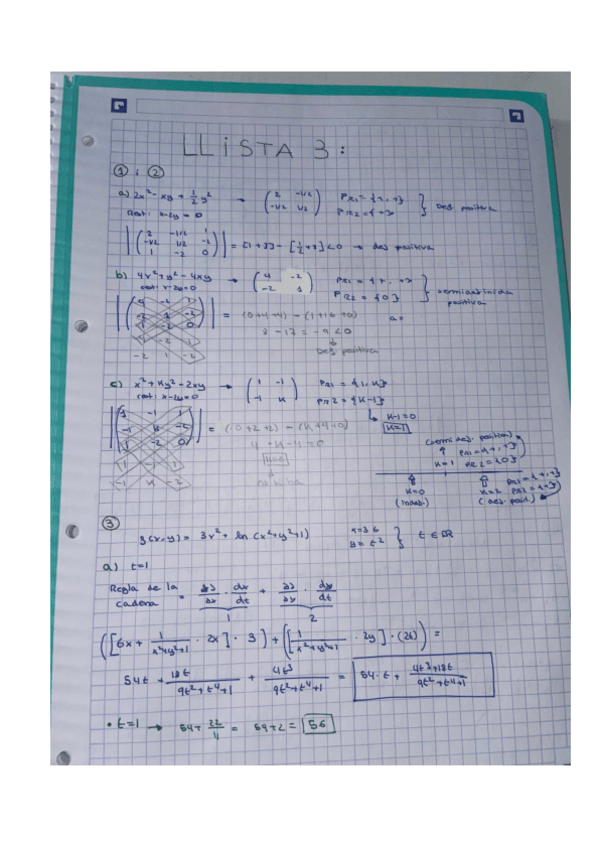 LLiSTA 3:
① i ②
a) 2x² - xy + 1/2 y² → (2 -1/2 / -1/2 1/2) PR1 = {+, +} PR2 = {+} } Def positiva
rest: x-2y = 0
|(2 -1/2 1 / -1/2 1/2 -2 / 1 -2 0)| = <0 → def positiva
b) 4x² + y² - 4xy → (4 -2 / -2 1) PR1 = {+, +} PR2 = {0} } semidefinida positiva
rest: x-2y=0
= (0+4+4) - (1+16+0)
8 - 17 = -9 < 0
↓
Def positiva
c) x² + Ky² - 2xy → (1 -1 / -1 K) PR1 = {1, K}
rest: x-2y=0 PR2 = {K-1}
↳ K-1=0
K=1
|(1 -1 1 / -1 K -2 / 1 -2 0)| = (0+2+2) - (K+4+0)
4 - K - 4 = 0
K=0
(semidef. positiva)
PR1 = {+, +}
K=1 PR2 = {0}
K=0 K=2 PR1 = {+, +} PR2 = {+}
(def. posit.)
③
z(x,y) = 3x² + ln(x²+y²+1) x=3t y=t² } t ∈ ℝ
a) t=1
Regla de la cadena = ∂z/∂x · dx/dt + ∂z/∂y · dy/dt
1 2
([6x + 1/(x²+y²+1) · 2x] · 3) + ([1/(x²+y²+1) · 2y] · (2t)) =
54t + 18t/(9t²+t⁴+1) + 4t³/(9t²+t⁴+1) = 54·t + (4t³+18t)/(9t²+t⁴+1)
• t=1 → 54 + 22/11 = 54+2 = 56